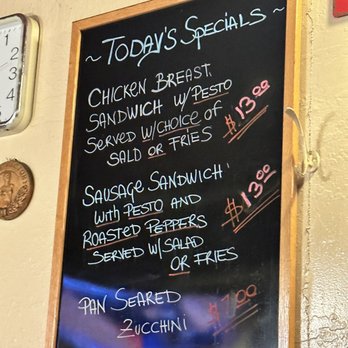 ~ TODAY'S SPECIALS ~
CHICKEN BREAST
SANDWICH W/ PESTO
SERVED W/CHOICE of
SALD OR FRIES
$13.00
SAUSAGE SANDWICH
with PESTO AND
ROASTED PEPPERS
SERVED W/SALAD
OR FRIES
$13.00
PAN SEARED
ZUCCHINI
$7.00
1
2
3
4